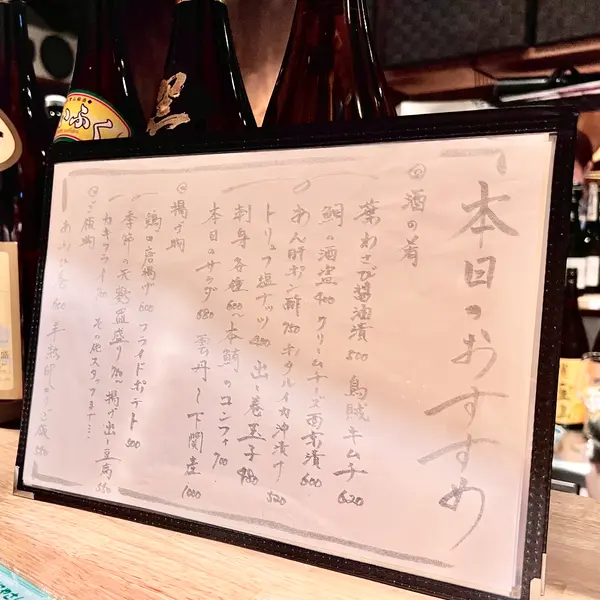 本日のおすすめ
◎酒の肴
葉わさび醤油漬 500 烏賊キムチ 620
鯛の酒盗 400 クリームチーズ西京漬 600
あん肝ポン酢 750 ホタルイカ沖漬け 520
トリュフ塩ナッツ 450 出し巻玉子 980
刺身各種 600〜 本鮪のコンフィ 700
本日のサラダ 880 雲丹〜下関産 1000
◎揚げ物
鶏の唐揚げ 600 フライドポテト 500
季節の天麩羅盛り 揚げ出し豆腐 550
カキフライ その他スタッフまで…
◎ご飯物
ご飯